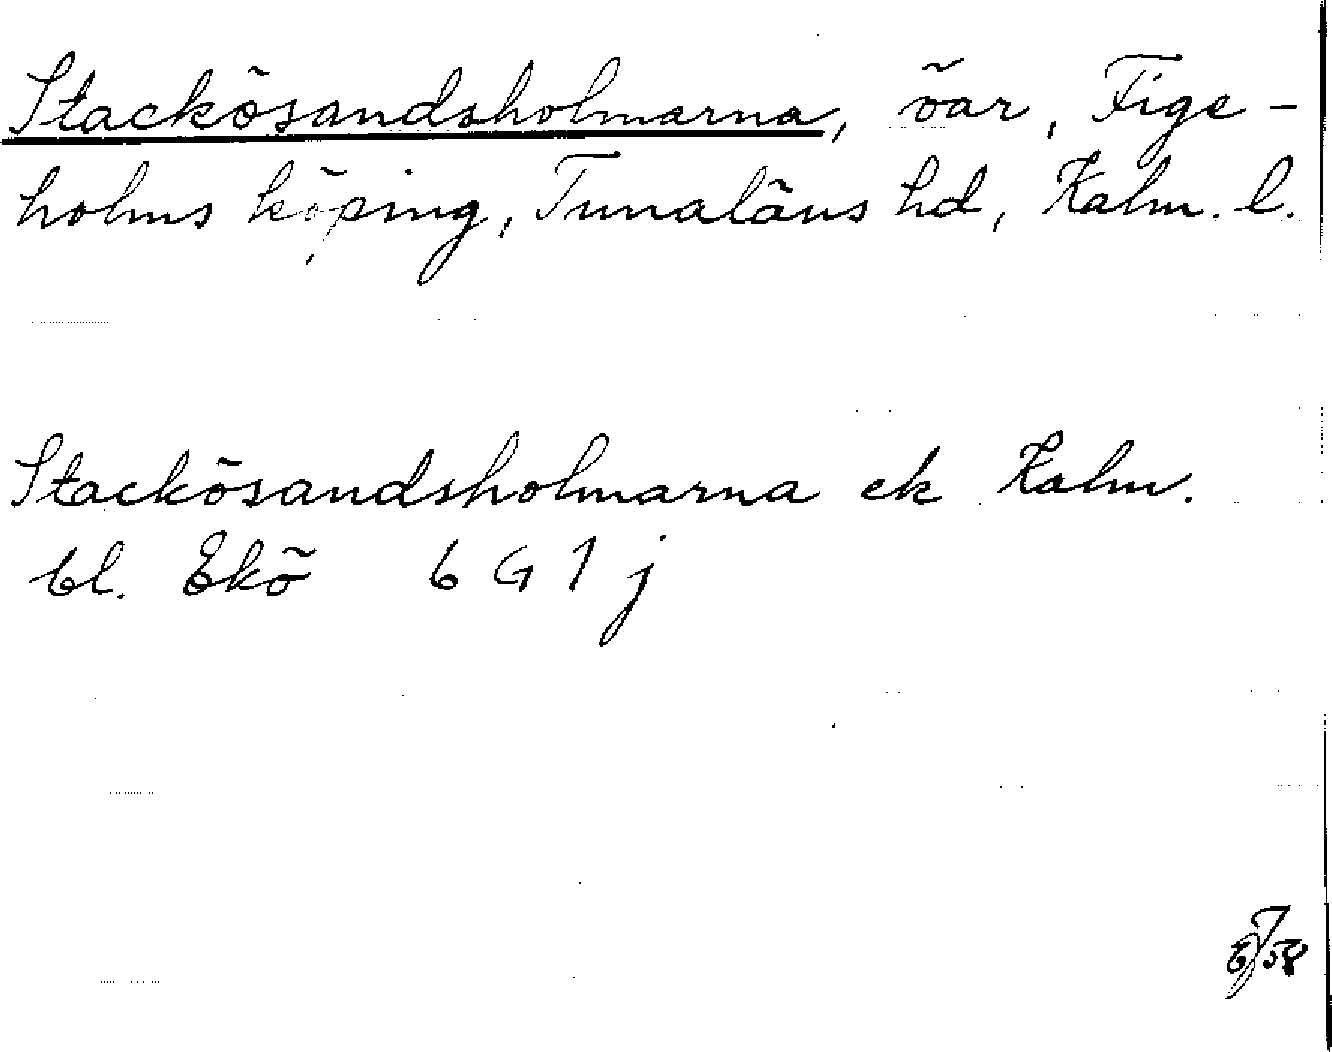 Stackösandsholmarna, öar, Fige-
holms köping, Tunaläns hd, Kalm. l.
Stackösandsholmarna ek Kalm.
bl. Ekö 6 G 1 j